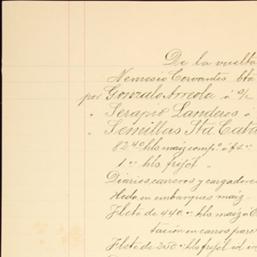 De la vuelta
Nemesio Cervantes
por Gonzalo Arreola á c/
" Serapio Landeros á
" Semillas Sta Cata
82 40 hls maiz comp.º á
1 " hls frijol
Diarios carreros y cargadores
Hoda. en embarques maiz
Flete de 440 " hls maiz á
tación en carros para
Flete de 250 " hls frijol id